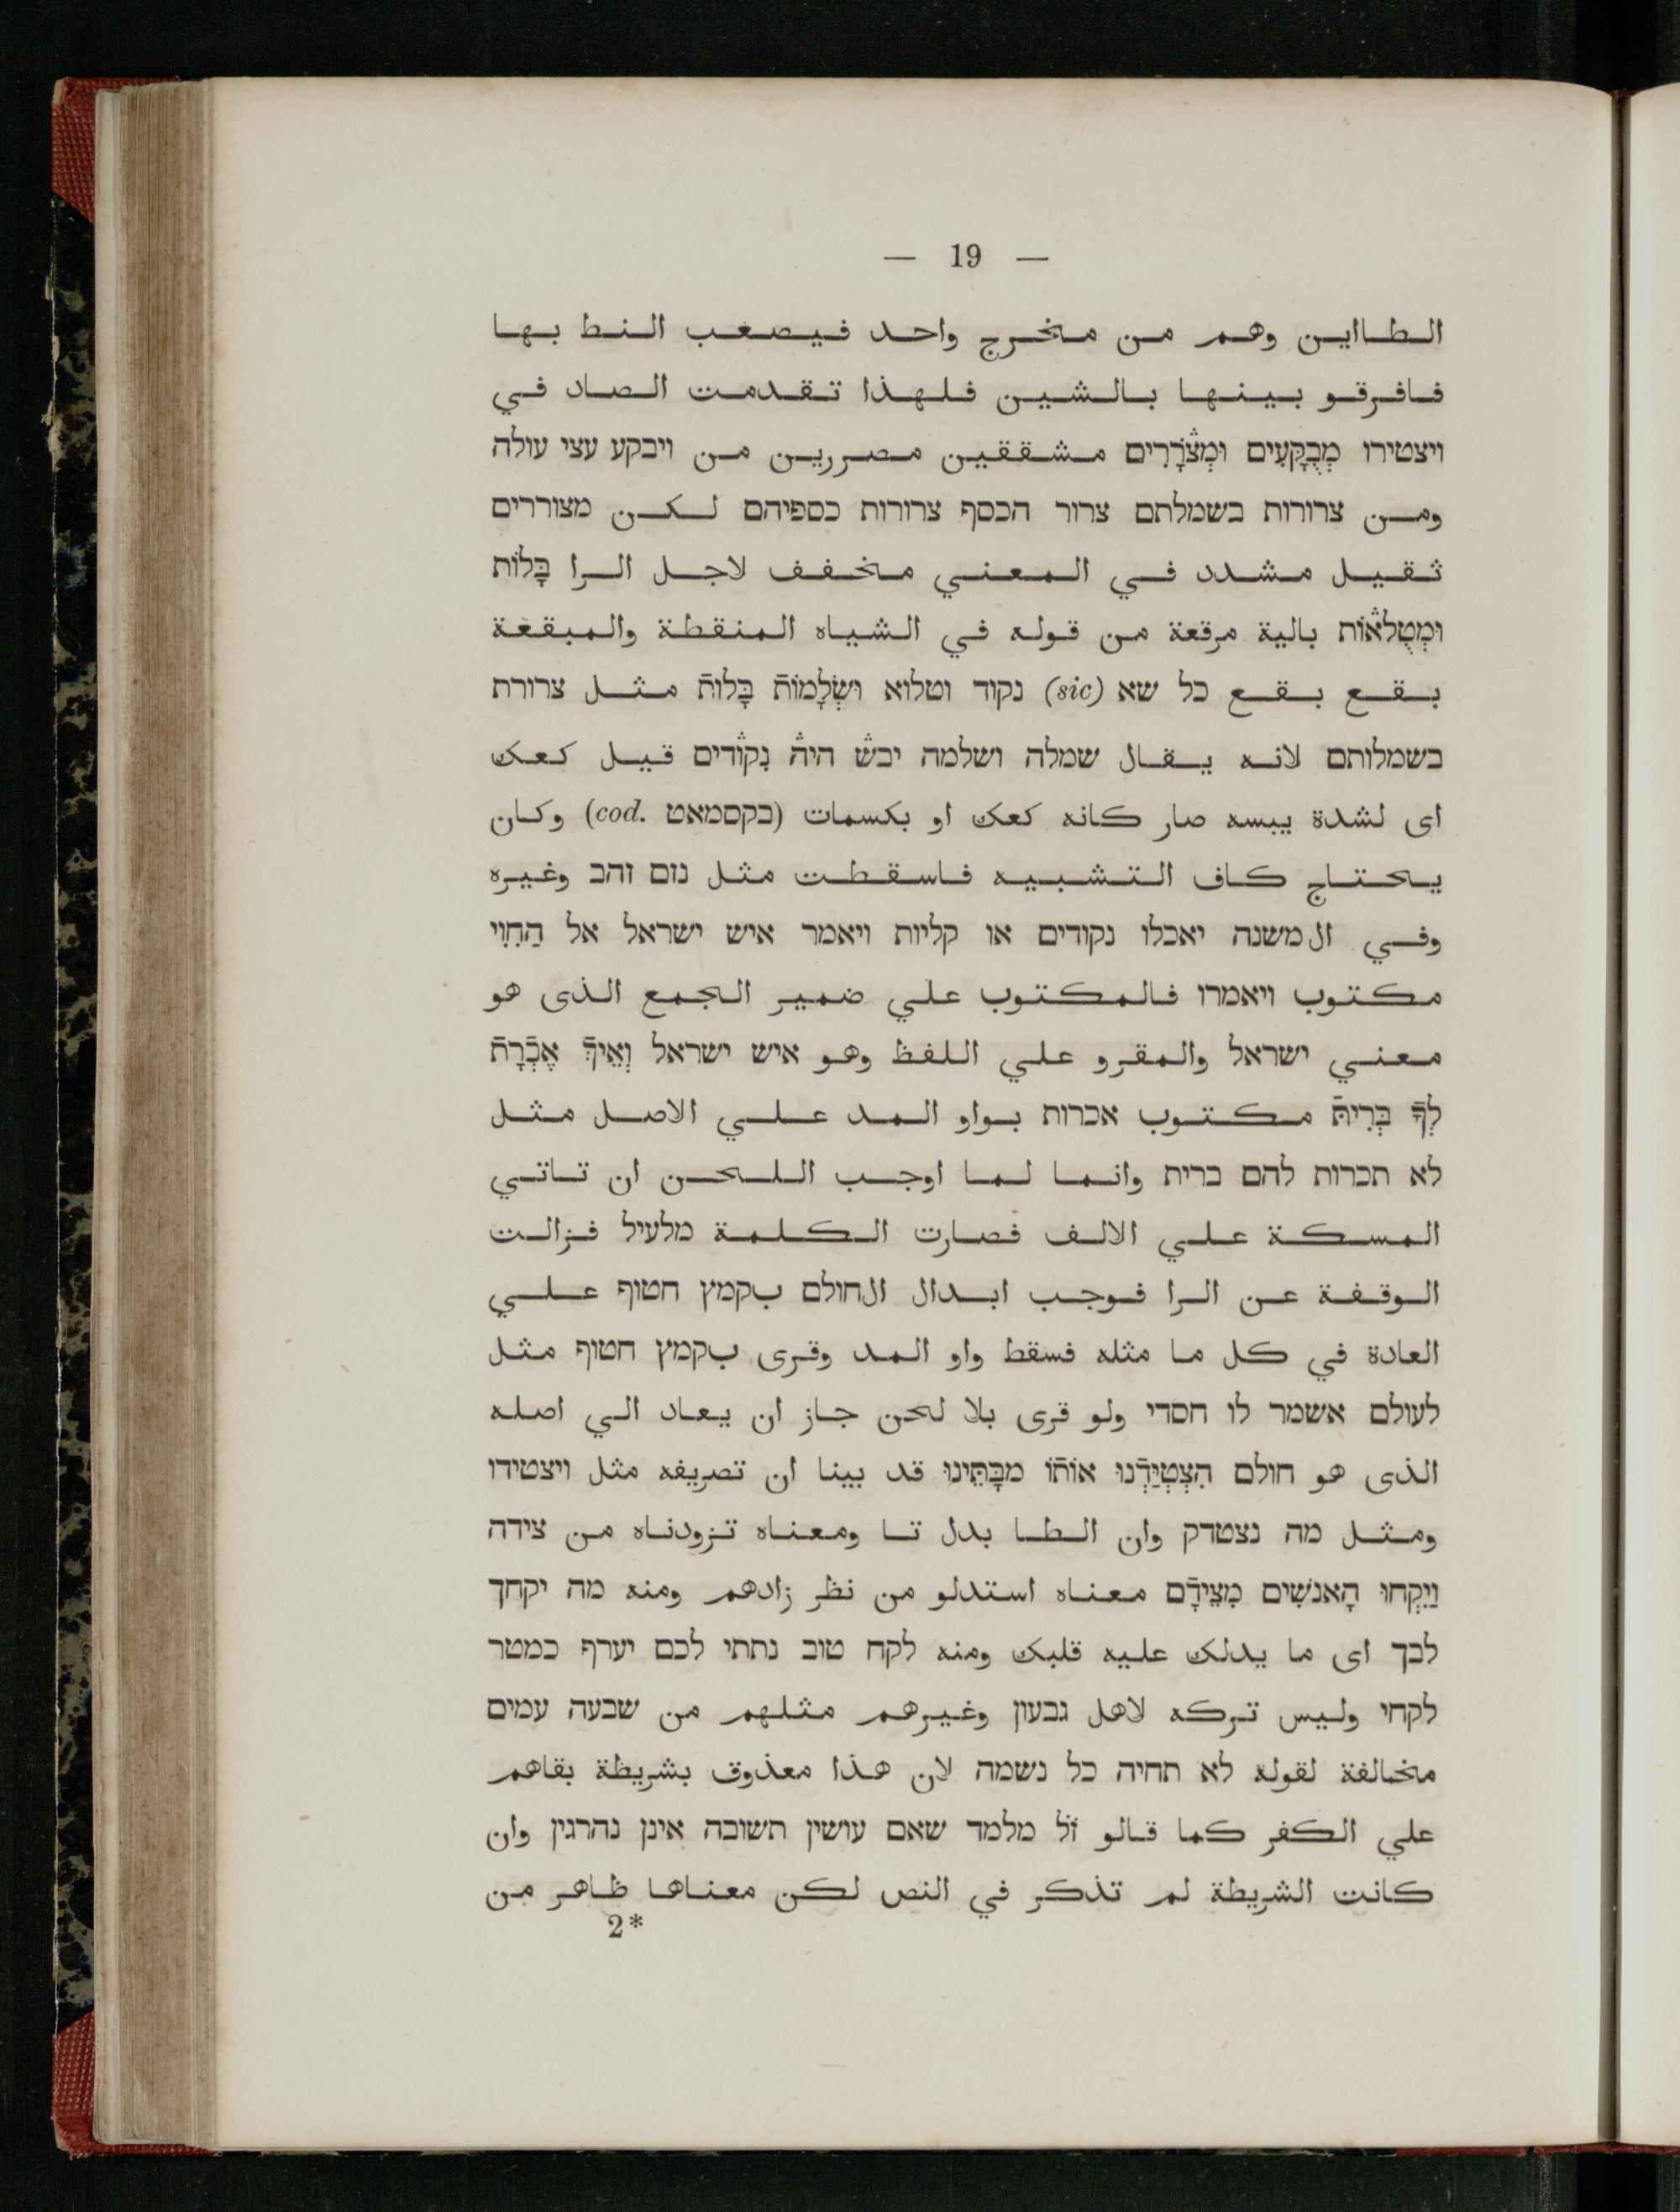 — 19 —
الطااين وهم من مخرج واحد فيصعب النط بها
فافرقو بينها بالشين فلهذا تقدمت الصاد في
ויצטירו מְבֻקָּעִים וּמְצֹרָרִים مشققين مصررين من ויבקע עצי עולה
ومن צרורות בשמלתם צרור הכסף צרורות כספיהם لكن מצוררים
ثقيل مشدد في المعني مخفف لاجل الرا בָּלוֹת
וּמְטֻלאוֹת بالية مرقعة من قوله في الشياه المنقطة والمبقعة
بقع بقع כל שא (sic) נקוד וטלוא וּשְׂלָמוֹת בָּלוֹת مثل צרורת
בשמלותם لانه يقال שמלה ושלמה יבש היה נִקוּדים قيل كعك
اى لشدة يبسه صار كانه كعك او بكسمات (בקסמאט cod.) وكان
يحتاج كاف التشبيه فاسقطت مثل נזם זהב وغيره
وفي ال משנה יאכלו נקודים או קליות ויאמר איש ישראל אל הַחִוִי
مكتوب ויאמרו فالمكتوب علي ضمير الجمع الذى هو
معني ישראל والمقرو علي اللفظ وهو איש ישראל וְאֵיךְ אֶכְרָת
לְךָ בְּרִית مكتوب אכרות بواو المد علي الاصل مثل
לא תכרות להם ברית وانما لما اوجب اللحن ان تاتي
المسكة علي الالف فصارت الكلمة מלעיל فزالت
الوقفة عن الرا فوجب ابدال الחולם بקמץ חטוף علي
العادة في كل ما مثله فسقط واو المد وقرى بקמץ חטוף مثل
לעולם אשמר לו חסדי ولو قرى بلا لحن جاز ان يعاد الي اصله
الذى هو חולם הִצְטְיַּדְנוּ אוֹתוֹ מִבָּתֵּינוּ قد بينا ان تصريفه مثل ויצטידו
ومثل מה נצטדק وان الطا بدل تا ومعناه تزودناه من צידה
וַיִּקְחוּ הָאנשִׁים מִצֵּידָם معناه استدلو من نظر زادهم ومنه מה יקחך
לבך اى ما يدلك عليه قلبك ومنه לקח טוב נתתי לכם יערף כמטר
לקחי وليس تركه لاهل גבעון وغيرهم مثلهم من שבעה עמים
مخالفة لقوله לא תחיה כל נשמה لان هذا معذوق بشريطة بقاهم
علي الكفر كما قالو ז״ל מלמד שאם עושין תשובה אינן נהרגין وان
كانت الشريطة لم تذكر في النص لكن معناها ظاهر من
2*